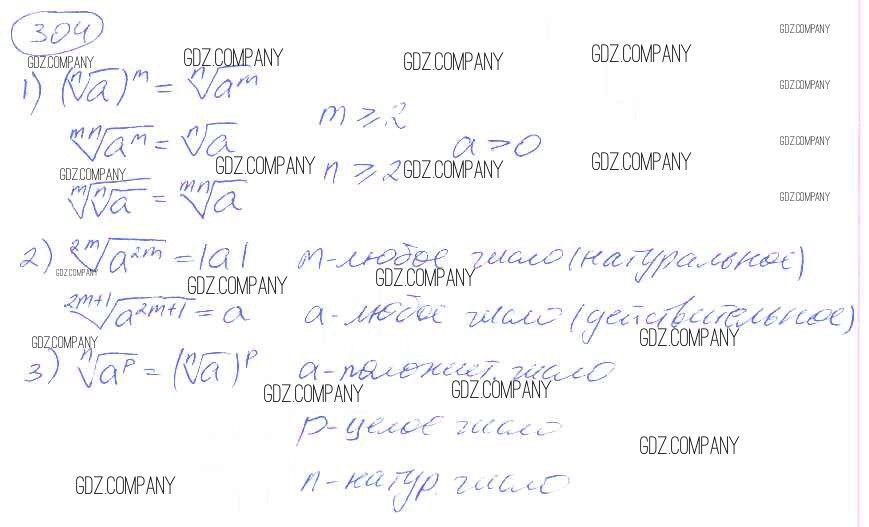 304
GDZ.COMPANY
GDZ.COMPANY GDZ.COMPANY GDZ.COMPANY GDZ.COMPANY
1) (ⁿ√a)ᵐ = ⁿ√aᵐ
GDZ.COMPANY
m ≥ 2
ᵐⁿ√aᵐ = ⁿ√a a > 0
GDZ.COMPANY
GDZ.COMPANY n ≥ 2 GDZ.COMPANY GDZ.COMPANY
GDZ.COMPANY
ᵐ√ⁿ√a = ᵐⁿ√a
GDZ.COMPANY
2) ²ᵐ√a²ᵐ = |a| m-любое число (натуральное)
GDZ.COMPANY GDZ.COMPANY GDZ.COMPANY
²ᵐ⁺¹√a²ᵐ⁺¹ = a a-любое число (действительное)
GDZ.COMPANY GDZ.COMPANY
3) ⁿ√aᵖ = (ⁿ√a)ᵖ a-положит. число
GDZ.COMPANY GDZ.COMPANY
p-целое число
GDZ.COMPANY
n-натур. число
GDZ.COMPANY